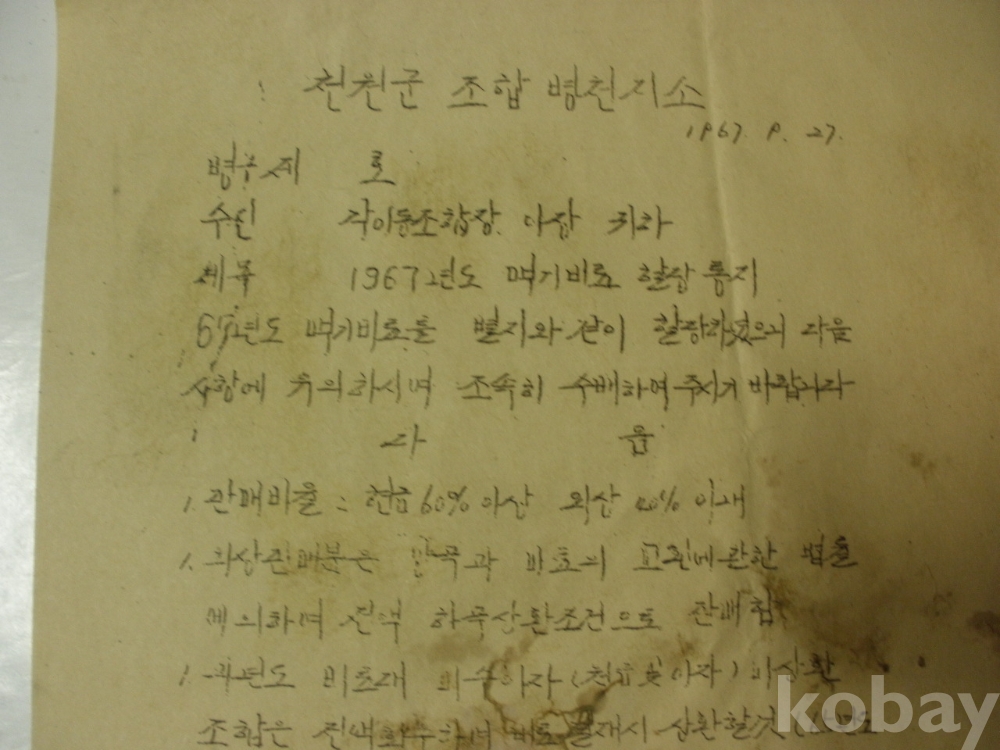 천원군 조합 병천지소
1967. 9. 27.
병구제 호
수신 각이동조합장 이장 귀하
제목 1967년도 맥기비료 할당통지
67년도 맥기비료를 별지와 같이 할당하였으니 다음
사항에 유의하시며 조속히 수배하여주시기 바랍니다
다 음
1. 판매비율 : 현금 60% 이상 외상 40% 이내
1. 외상판매분은 양곡과 비료의 교환에관한 법률
에의하며 전액 하곡상환조건으로 판매함
1. 비료대 미수이자 미상환
조합은 전액 상환할것
kobay